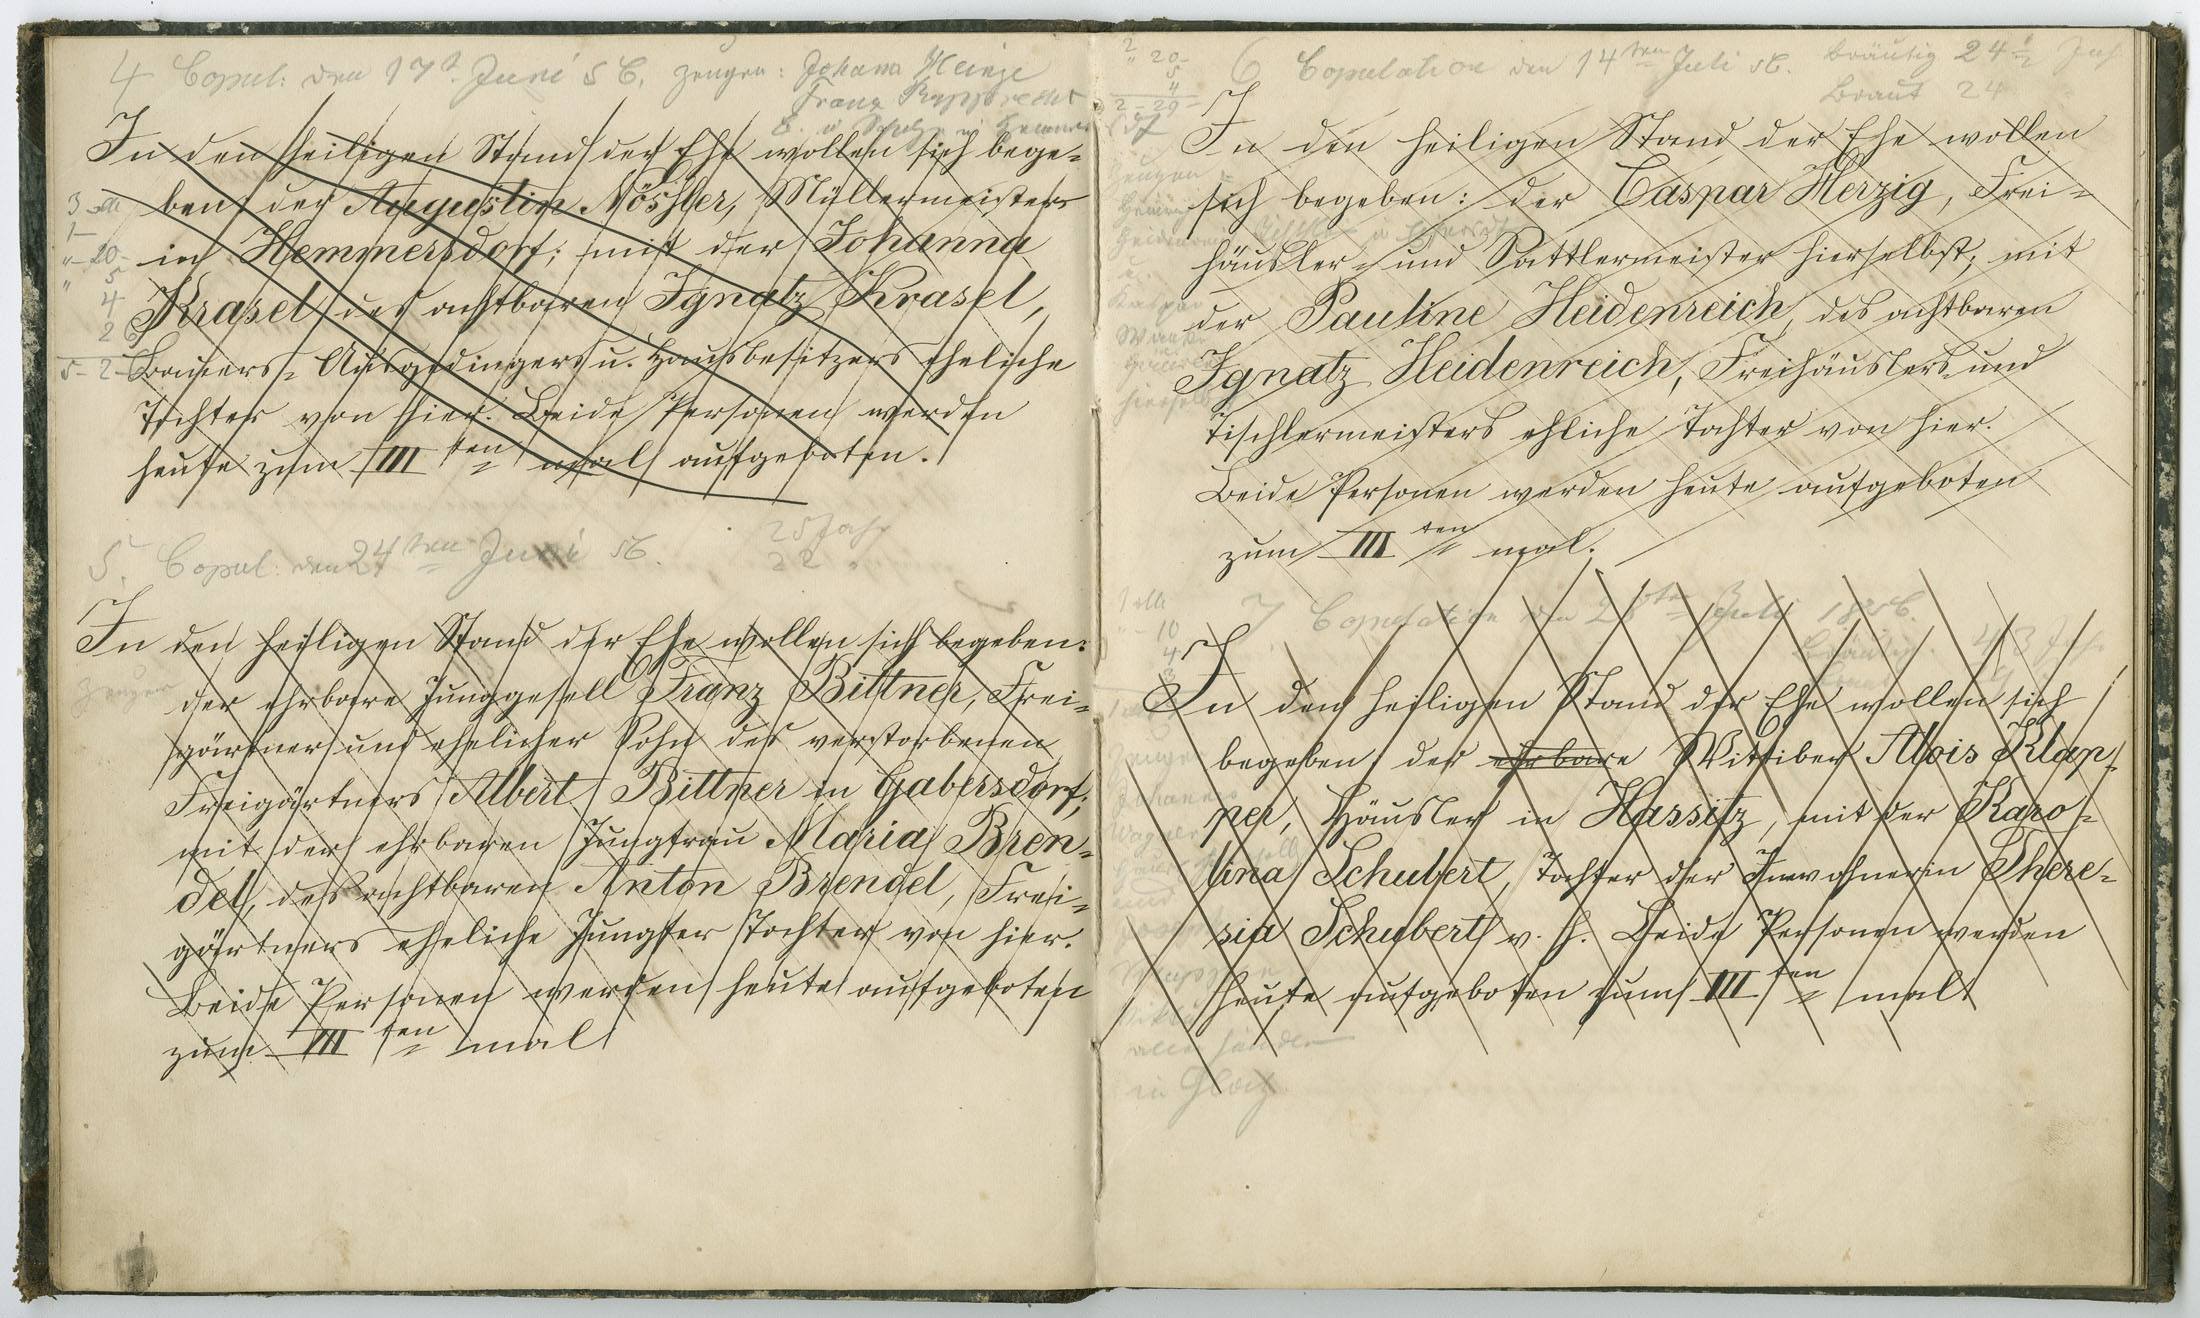 4 Copul: den 17t. Juni 56. Zeugen: Johann Heinze
Franz Rupprecht
In den heiligen Stand der Ehe wollen sich bege-
ben der Augustin Nösßler, Müllermeister
in Hemmersdorf; mit der Johanna
Krasel des achtbaren Ignatz Krasel,
Bauers- Ausgedingers u. Hausbesitzers eheliche
Tochter von hier. Beide Personen werden
heute zum III ten mal aufgeboten.
3
1-
"- 20-
" 5
4
2 6
5- 2-
5. Copul: den 24ten Juni 56. 25 Jahr
22 "
In den heiligen Stand der Ehe wollen sich begeben:
Zeugen
der ehrbare Junggesell Franz Bittner, Frei-
gärtner und ehelicher Sohn des verstorbenen
Freigärtners Albert Bittner in Gabersdorf;
mit der ehrbaren Jungfrau Maria Bren-
del, des achtbaren Anton Brendel, Frei-
gärtners eheliche Jungfer Tochter von hier.
Beide Personen werden heute aufgeboten
zum III ten mal
2
" 20-
5
4
2 - 29-
6 Copulation den 14ten Juli 56. Bräutig 24 1/2 Jahr
Braut 24
In den heiligen Stand der Ehe wollen
Zeugen
sich begeben: der Caspar Herzig, Frei-
häusler- und Sattlermeister hierselbst, mit
der Pauline Heidenreich, des achtbaren
Ignatz Heidenreich, Freihäuslers- und
Tischlermeisters ehliche Tochter von hier.
Beide Personen werden heute aufgeboten
zum III ten mal.
7 Copulation den 28ten Juli 1856.
10
4
Bräutig. 43 Jahr
In den heiligen Stand der Ehe wollen sich
begeben der ehrbare Wittiber Alois Klap-
per, Häusler in Hassitz, mit der Karo-
lina Schubert, Tochter der Inwohnerin There-
sia Schubert v. h. Beide Personen werden
heute aufgeboten zum III ten mal
in Glatz